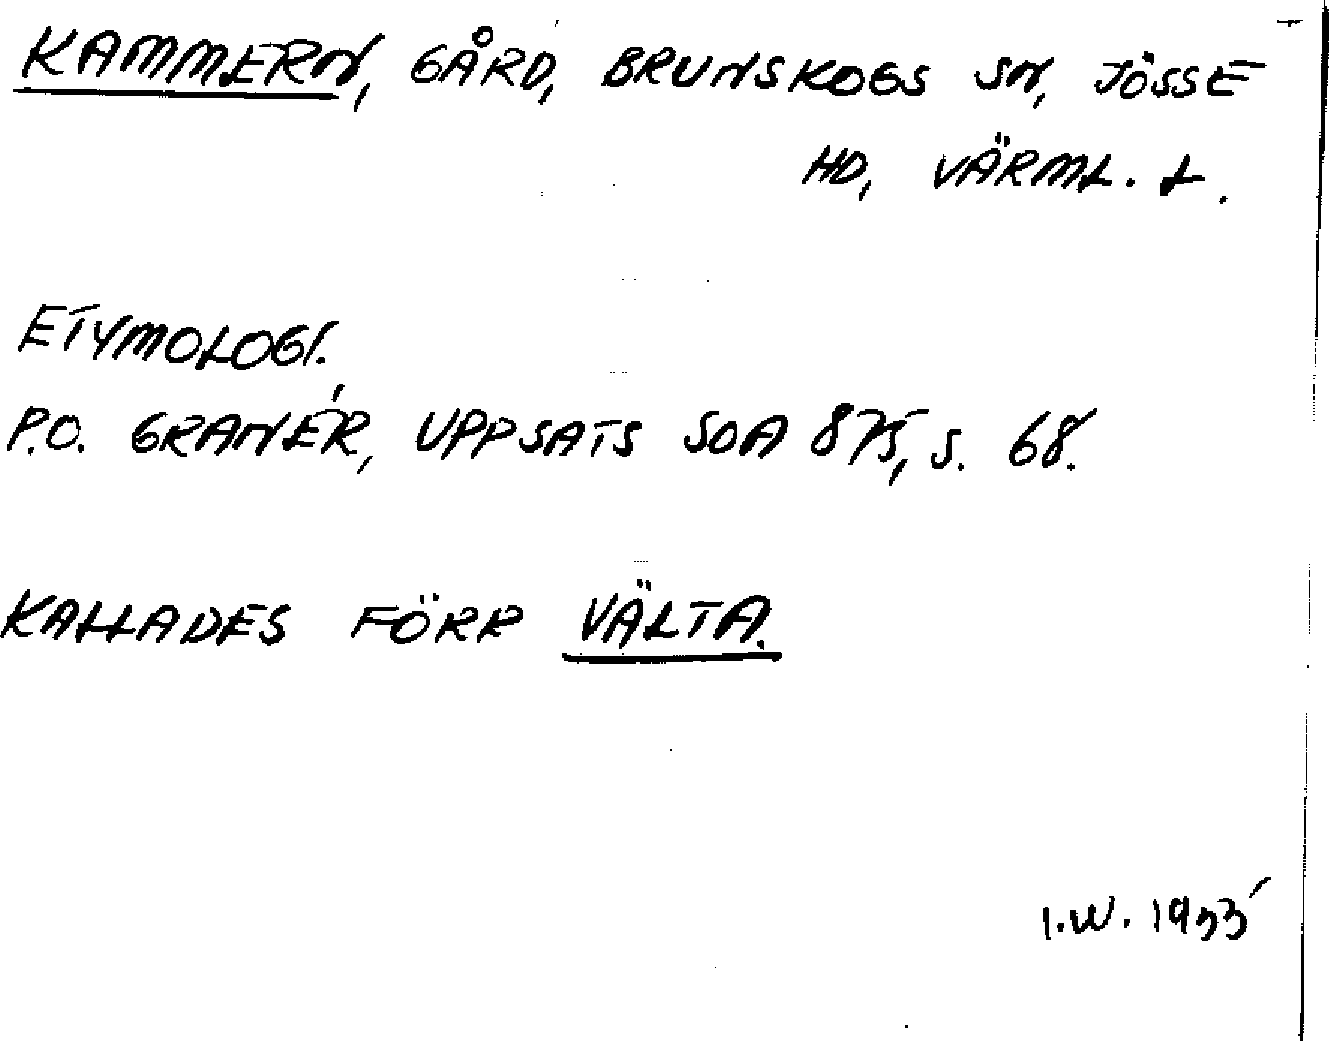 KAMMERN, GÅRD, BRUNSKOGS SN, JÖSSE
HD, VÄRML. L.
ETYMOLOGI.
P.O. GRANÉR, UPPSATS SOA 875, S. 68.
KALLADES FÖRR VÄLTA.
I.W.